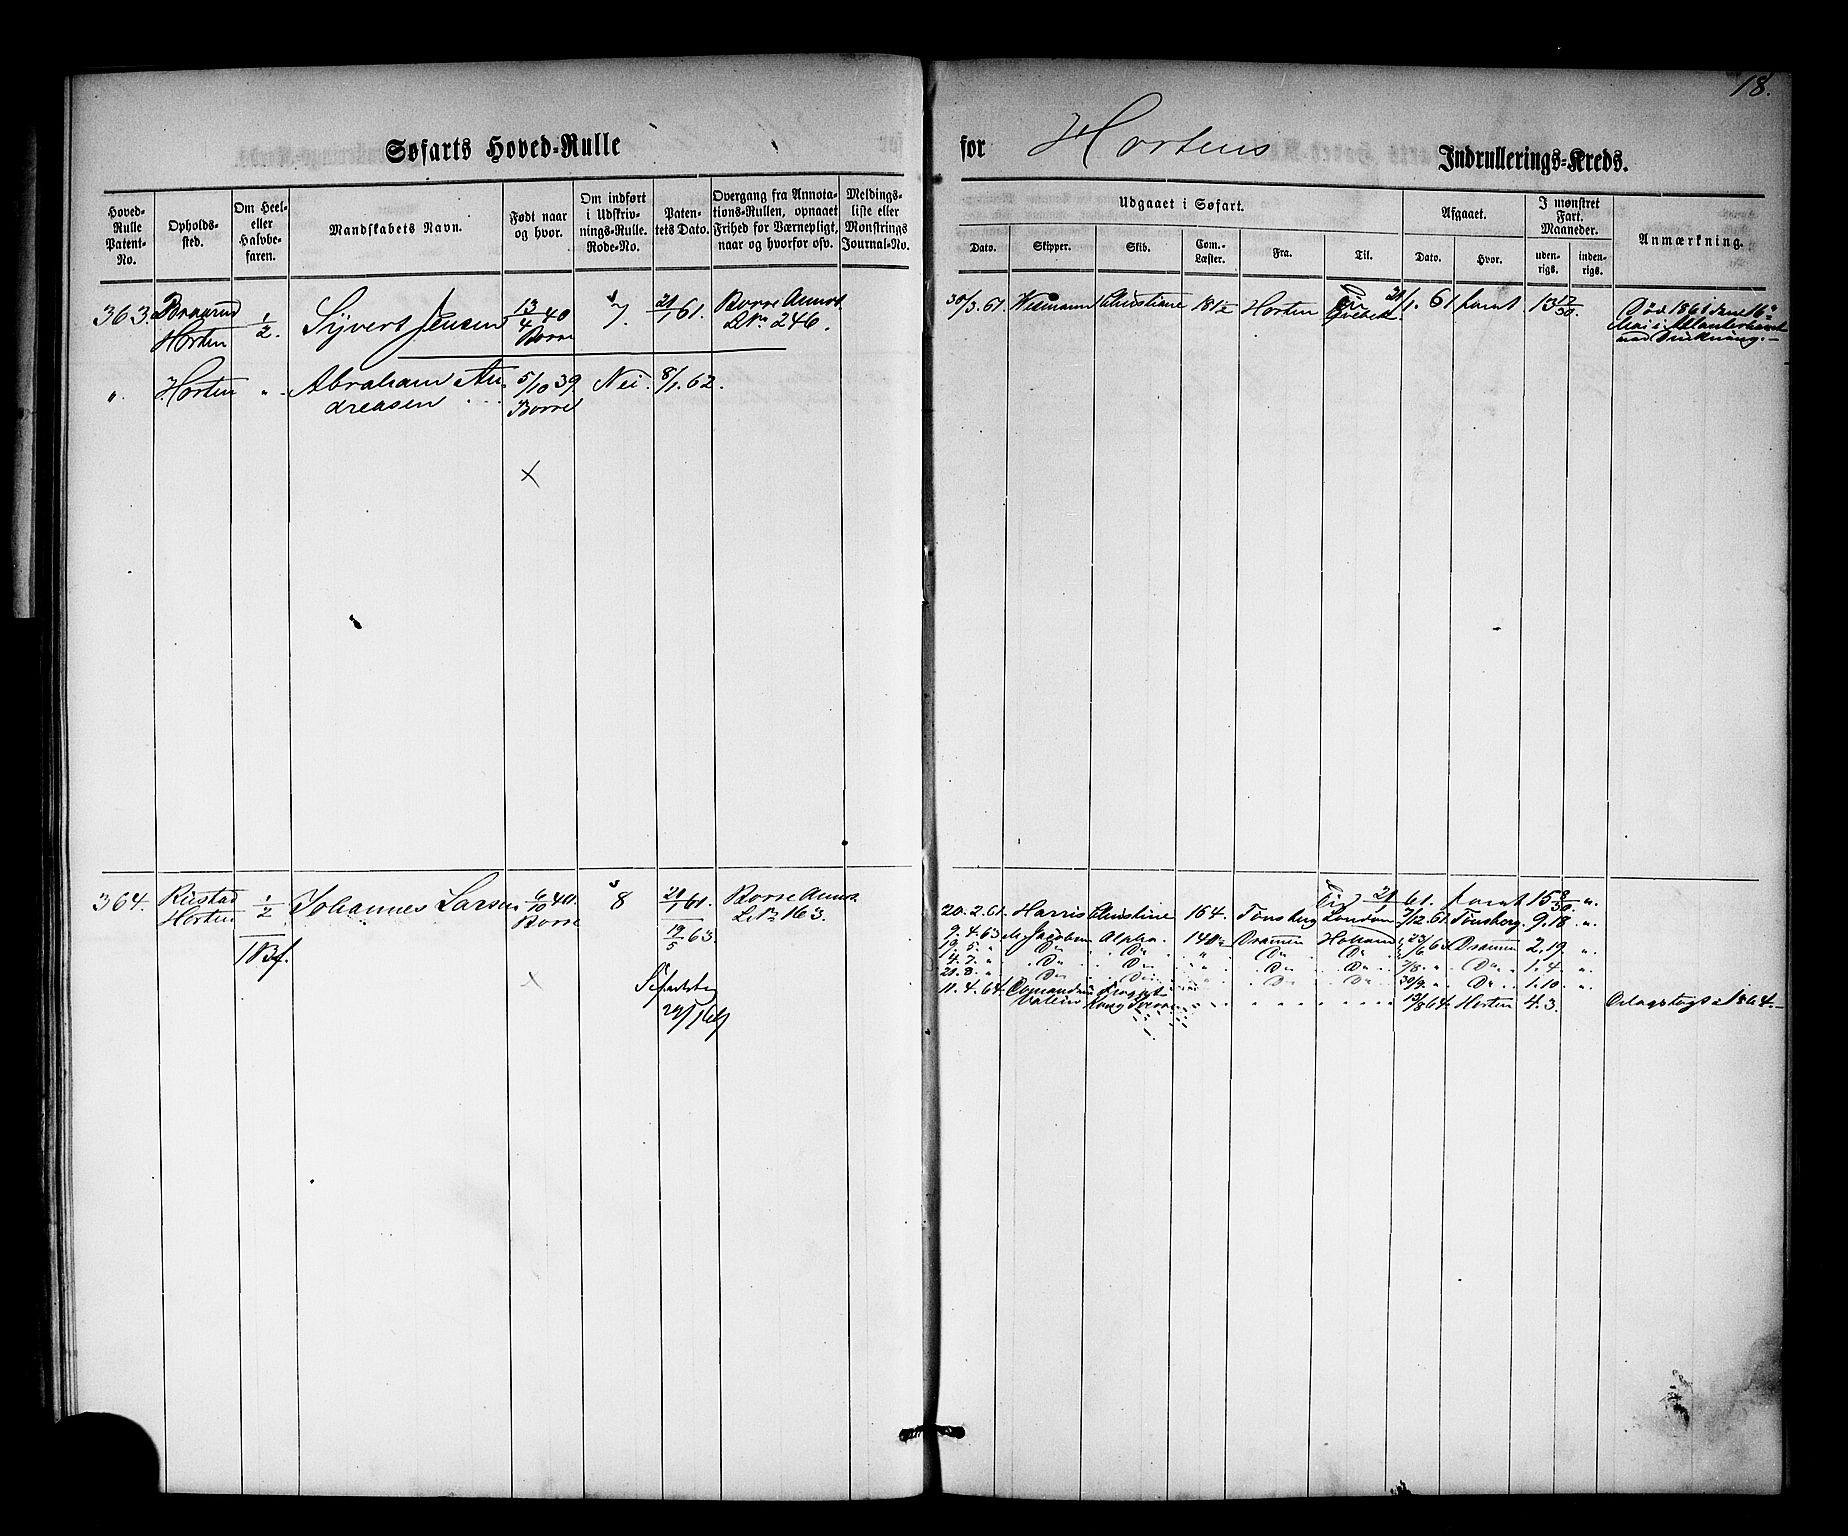 18.
Søfarts Hoved-Rulle for Hortens Indrullerings-Kreds.
Hoved-Rulle Patent-No.
Opholds-sted.
Om Heel- eller Halvbe-faren.
Mandskabets Navn.
Født naar og hvor.
Om indført i Udskriv-nings-Rulle. Rode-No.
Paten-tets Dato.
Overgang fra Annota-tions-Rullen, opnaaet Frihed for Værnepligt, naar og hvorfor osv.
Meldings-liste eller Mønstrings Journal-No.
Udgaaet i Søfart.
Dato. Skipper. Skib. Com.-Læster. Fra. Til.
Afgaaet.
Dato. Hvor.
I mønstret Fart. Maaneder.
uden-rigs. inden-rigs.
Anmærkning.
363. Braarud 1/2. Syvert Jensen 13/4 40 7. 21/1 61. Borre Annot.
Horten Borre L.No 246.
30/3.61. Wiemann Christiane 181½ Horten Qvebek 1. 61 faret 13 12/30.
Død 1861 den 16de
Mai i Atlanterhavet
ved Drukning.
". Horten ". Abraham An- 5/10 39 Nei. 8/1.62.
dreasen Borre
364. Rustad 1/2 Johannes Larsen 6/10 40. 8 21/1 61. Borre Annot.
Horten Borre L.No 163.
1 Bf. 19/5 63.
Til 21/1 61. faret 15 8/30. ".
20.2.61. Harris Christine 164. Tønsberg London 7/12.61. Tønsberg. 9.18 ".
9.4.63 Jacobsen Alpha. 140½ Dramen Holland 23/6 63 Dramen 2.19. ".
19.5. " Do Do " Do Do
4.7. " Do Do " Do Do 7/8. " Do 1.4 ".
20.8. " Do Do Do Do 30/9. " Do 1.10. ".
11.4.64. 19/8 64. Horten 4.3. 1864.